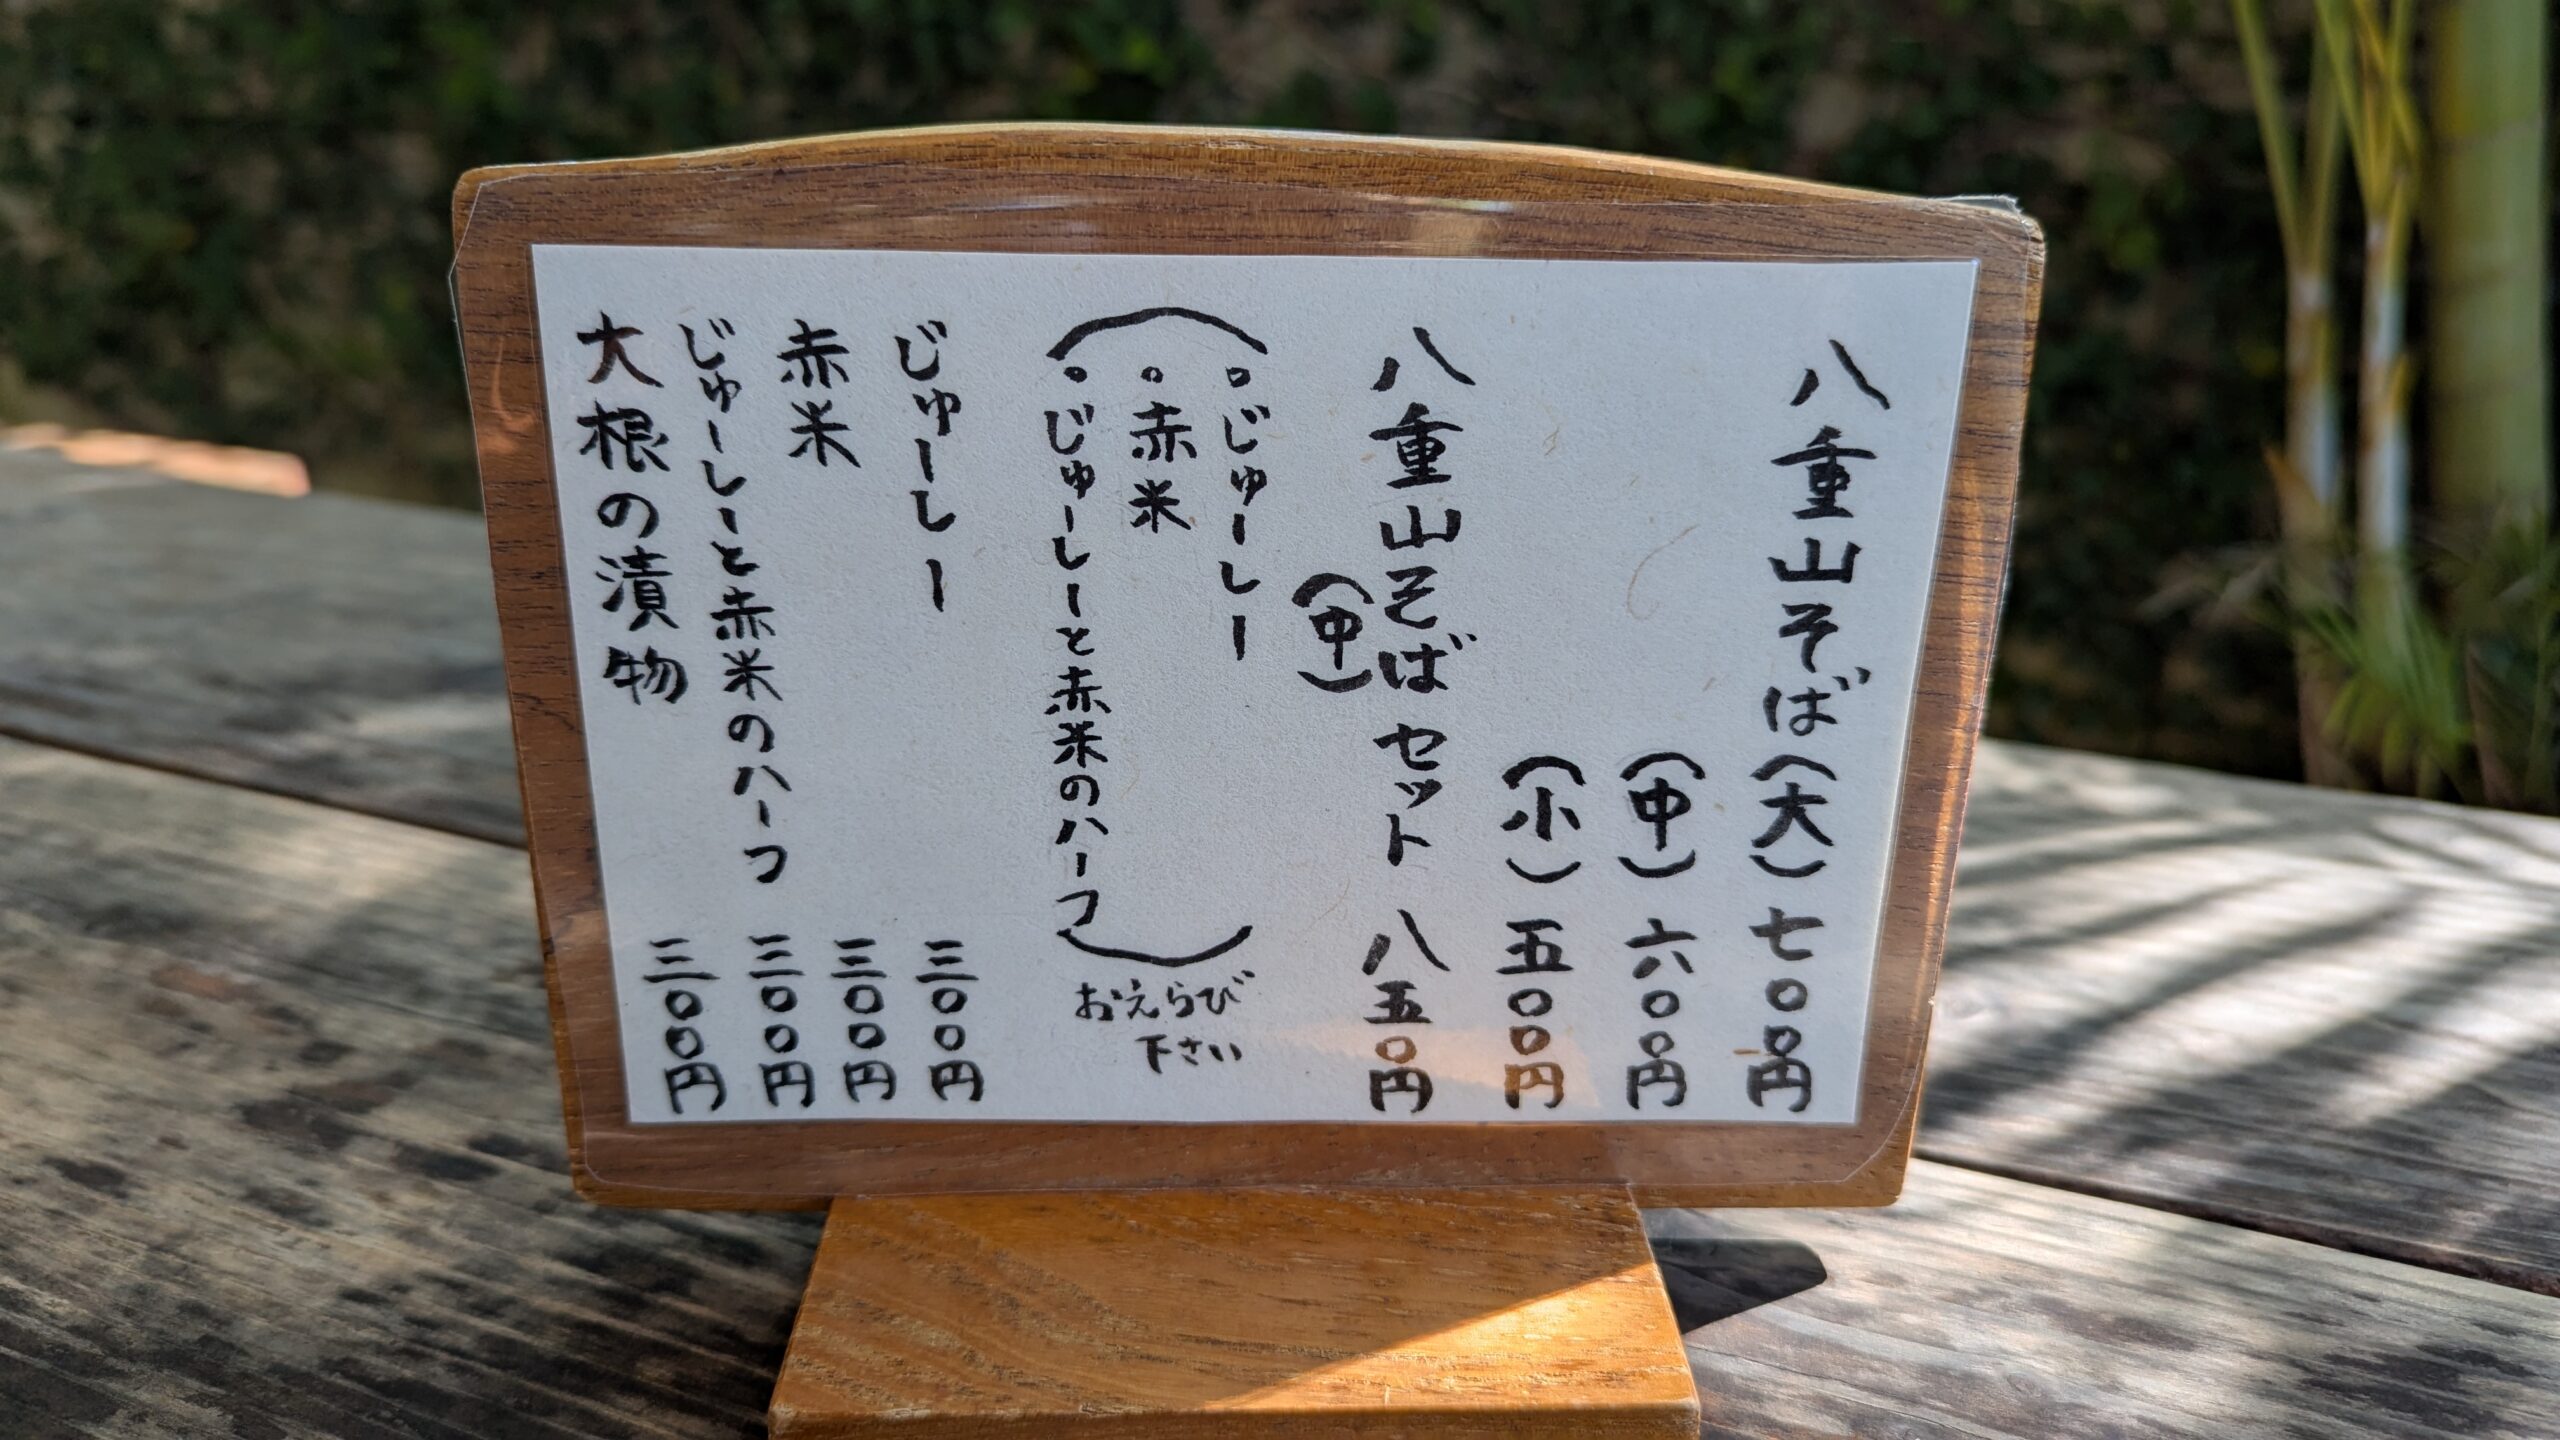 八重山そば（大）七〇〇円
（中）六〇〇円
（小）五〇〇円
八重山そばセット 八五〇円
（中）
（。じゅーしー
。赤米
。じゅーしーと赤米のハーフ）
おえらび
下さい
じゅーしー 三〇〇円
赤米 三〇〇円
じゅーしーと赤米のハーフ 三〇〇円
大根の漬物 三〇〇円